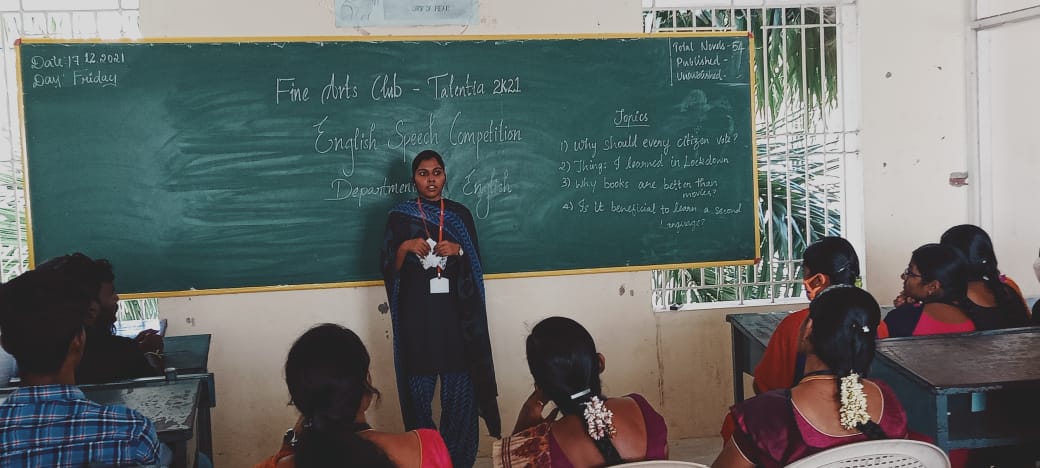 Date: 17.12.2021
Day: Friday
Fine Arts Club - Talentia 2K21
English Speech Competition
Department English
Total Novels - 54
Published -
Unpublished -
Topics
1) Why should every citizen vote?
2) Things I learned in Lockdown
3) Why books are better than
movies?
4) Is it beneficial to learn a second
language?